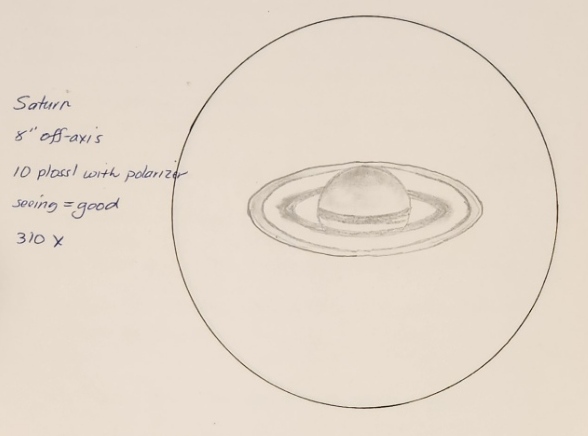 Saturn
8" off-axis
10 plossl with polarizer
seeing = good
310 x